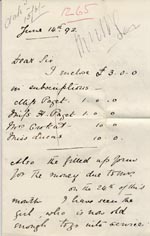 R65
June 16th 92
Dear Sir
I enclose £3.0.0
in subscriptions -
Miss Paget 1 0 0
Miss H. Paget 1 0 0
Mrs 10 0
Miss Lucas 10 0
Also the filled up form
for the money due to
on the 24th of this
month I have seen the
girl, who is now old
enough to go into service